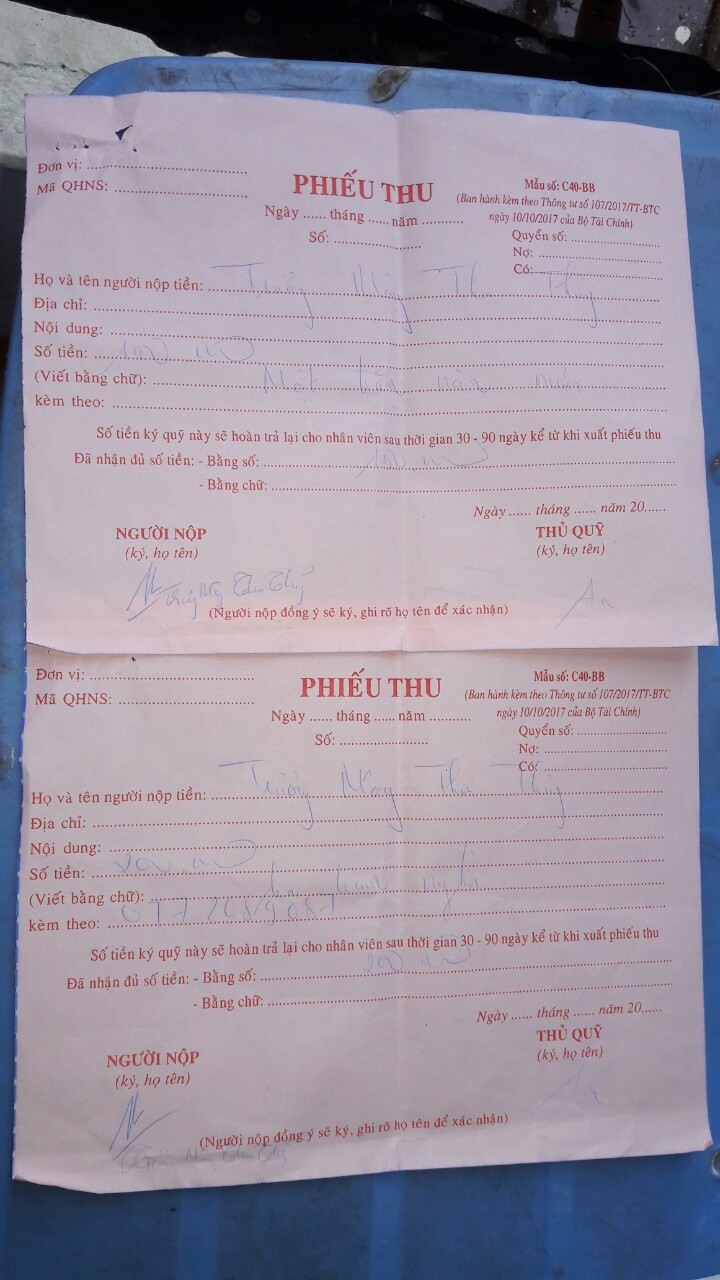 Đơn vị: ................................
Mã QHNS: ................................
PHIẾU THU
Ngày ...... tháng ...... năm ............
Số: .........................
Mẫu số: C40-BB
(Ban hành kèm theo Thông tư số 107/2017/TT-BTC
ngày 10/10/2017 của Bộ Tài Chính)
Quyển số: .........................
Nợ: ................................
Có: ................................
Họ và tên người nộp tiền: Trương Mộng Thu Thủy
Địa chỉ: ................................
Nội dung: ................................
Số tiền: 100
(Viết bằng chữ): Một trăm
kèm theo: ................................
Số tiền ký quỹ này sẽ hoàn trả lại cho nhân viên sau thời gian 30 - 90 ngày kể từ khi xuất phiếu thu
Đã nhận đủ số tiền: - Bằng số: 100
- Bằng chữ: ................................
Ngày ...... tháng ...... năm 20......
NGƯỜI NỘP
(ký, họ tên)
THỦ QUỸ
(ký, họ tên)
Thu Thủy
An
(Người nộp đồng ý sẽ ký, ghi rõ họ tên để xác nhận)
Đơn vị: ................................
Mã QHNS: ................................
PHIẾU THU
Ngày ...... tháng ...... năm ............
Số: .........................
Mẫu số: C40-BB
(Ban hành kèm theo Thông tư số 107/2017/TT-BTC
ngày 10/10/2017 của Bộ Tài Chính)
Quyển số: .........................
Nợ: ................................
Có: ................................
Họ và tên người nộp tiền: Trương Mộng Thu Thủy
Địa chỉ: ................................
Nội dung: ................................
Số tiền:
(Viết bằng chữ): trăm
kèm theo:
Số tiền ký quỹ này sẽ hoàn trả lại cho nhân viên sau thời gian 30 - 90 ngày kể từ khi xuất phiếu thu
Đã nhận đủ số tiền: - Bằng số:
- Bằng chữ: ................................
Ngày ...... tháng ...... năm 20......
NGƯỜI NỘP
(ký, họ tên)
THỦ QUỸ
(ký, họ tên)
An
(Người nộp đồng ý sẽ ký, ghi rõ họ tên để xác nhận)